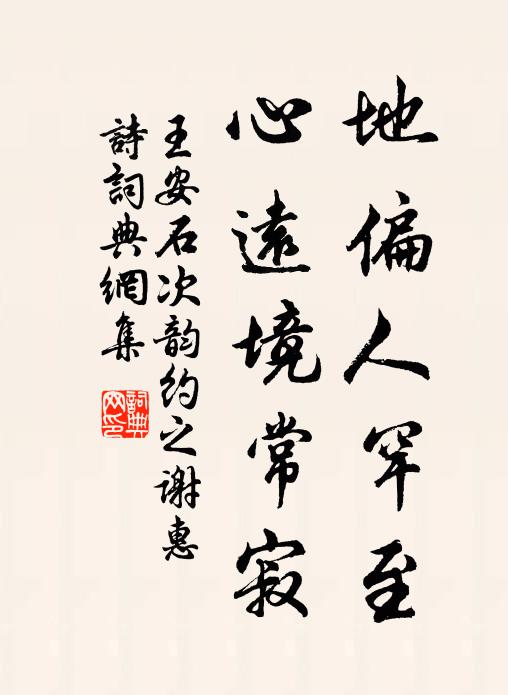 地偏人罕至
心遠境常寂
王安石次韵約之謝惠
詩詞典網集
詞典網印